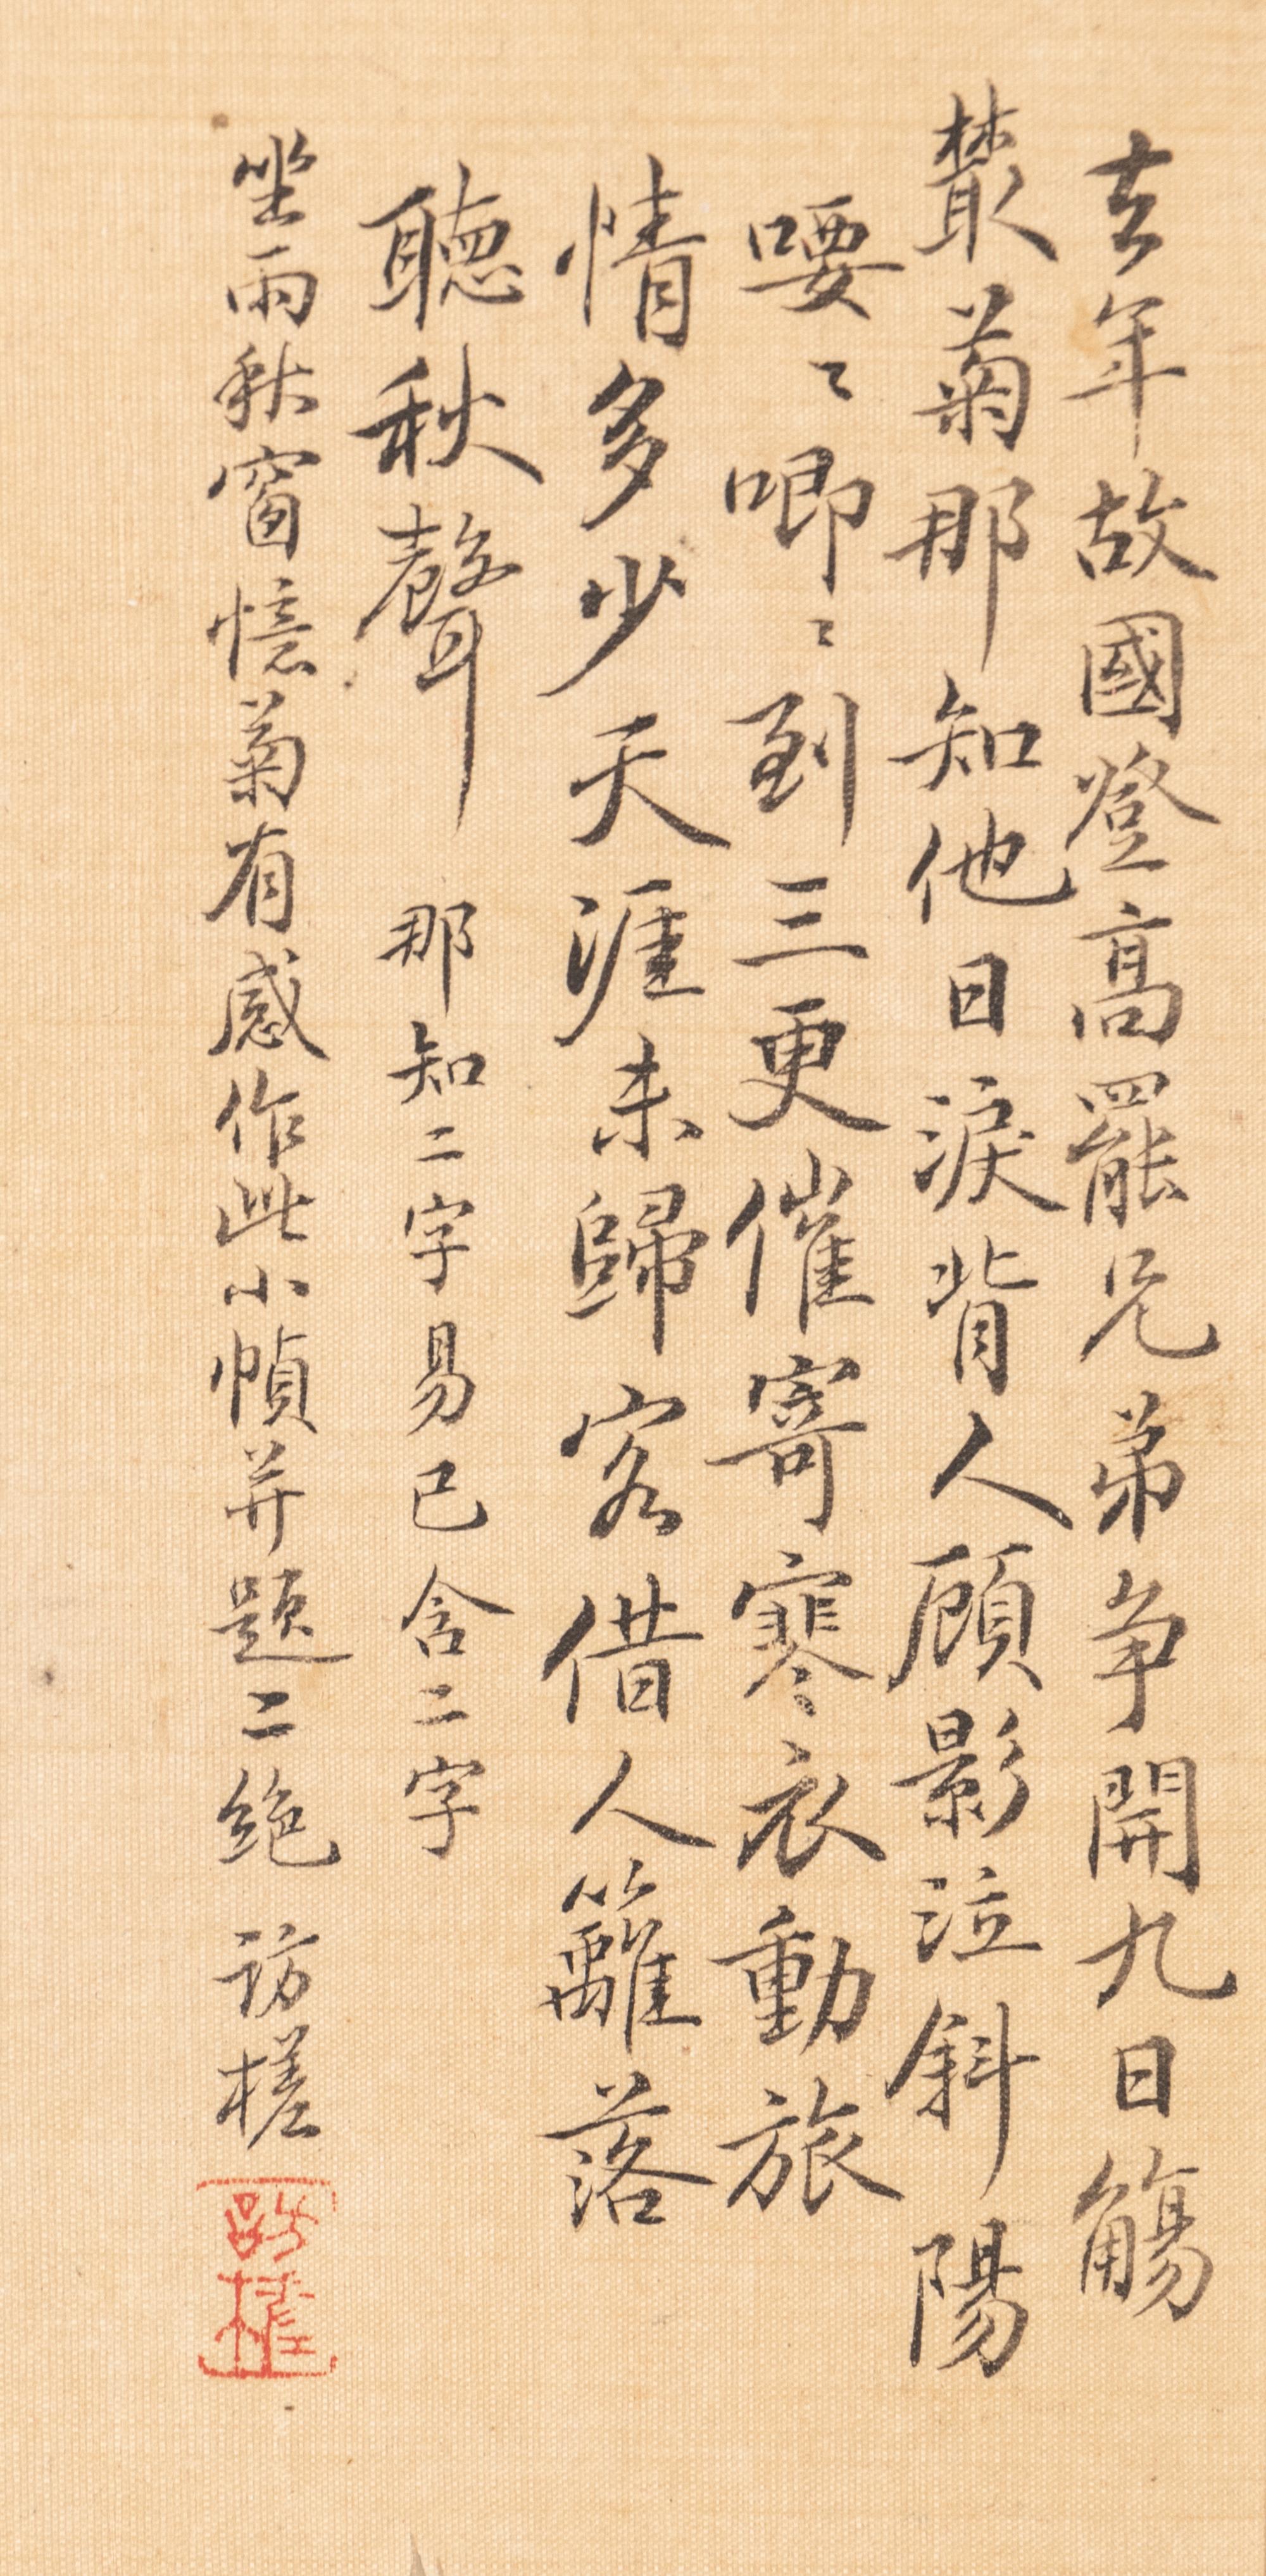 去年故國登高罷兄弟爭開九日觴
叢菊那知他日淚背人顧影泣斜陽
喓〻唧〻到三更催寄寒衣動旅
情多少天涯未歸客借人籬落
聽秋聲 那知二字易已含二字
坐雨秋窗憶菊有感作此小幀并題二絶 訪槎
訪槎